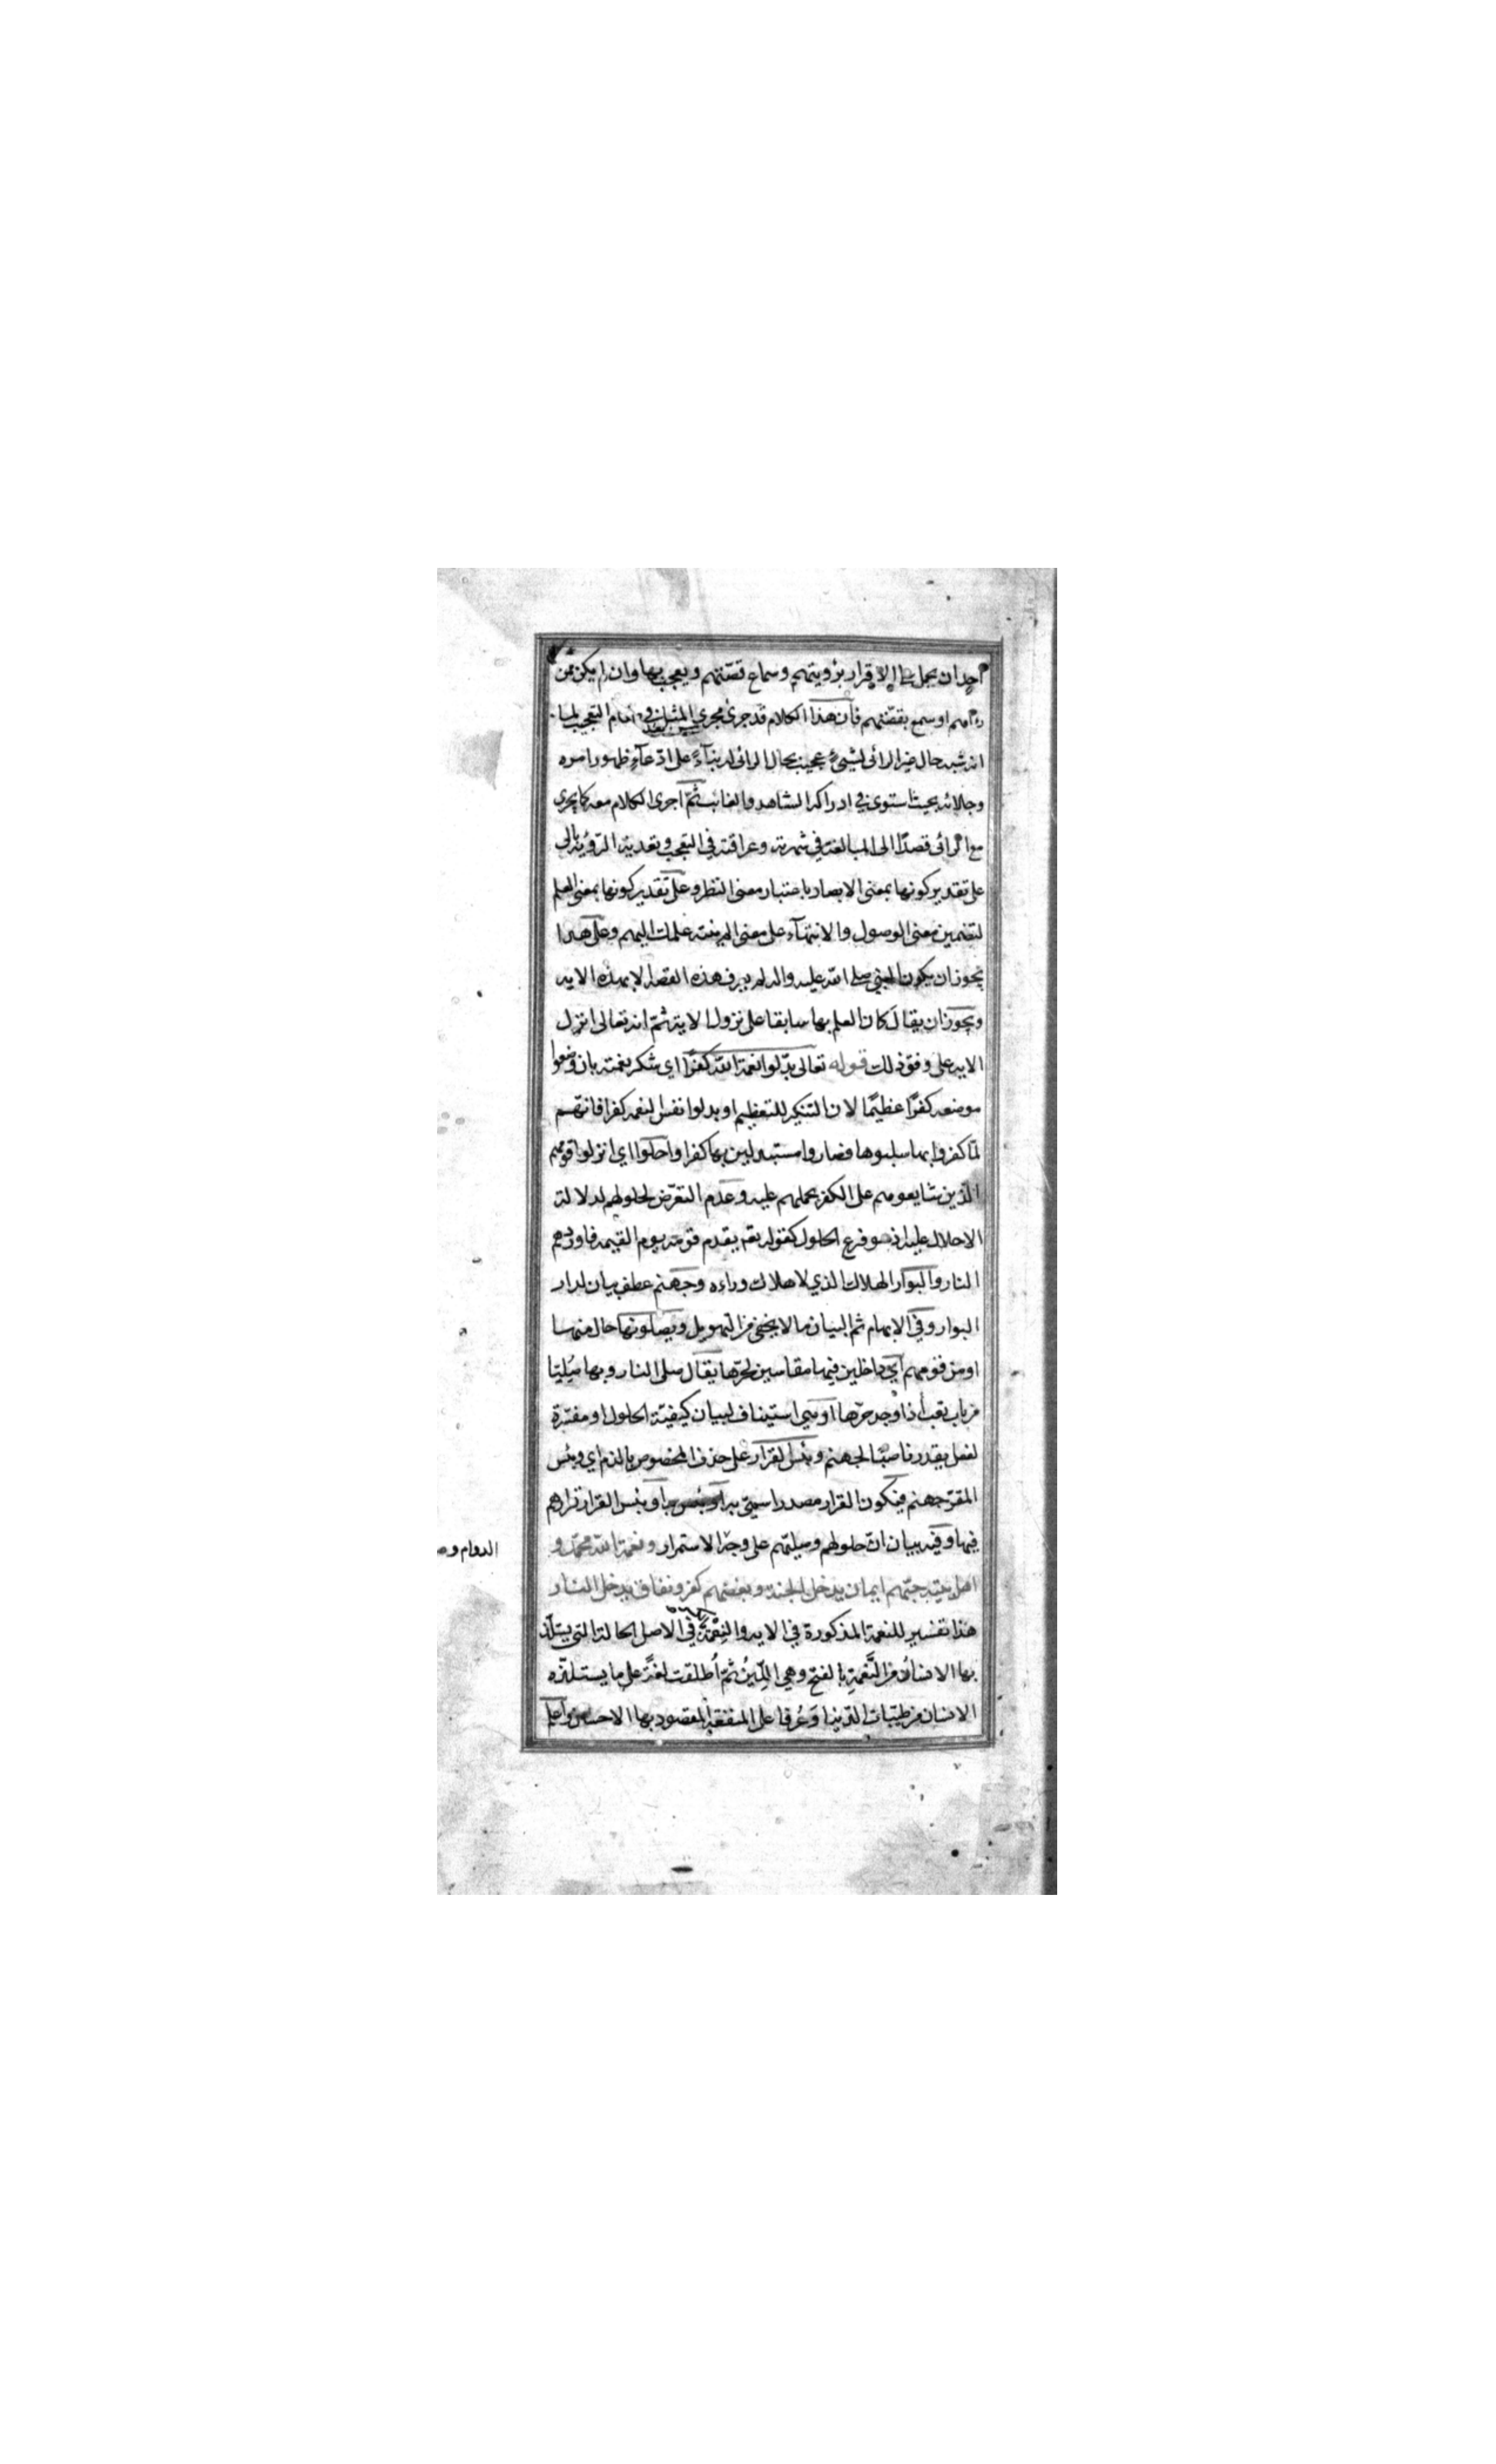 احد ان يحمل على الاقرار برؤيتهم وسماع قصّتهم ويعجب بها وان لم يكن ممن
راهم او سمع بقصّتهم فان هذا الكلام قد جرى مجرى المثل في مقام التعجب لما
انه شبه حال غير الرائى لشيءٍ عجيب بحال الرائى له بناءً على ادّعآءِ ظهور امره
وجلائه بحيث استوى في ادراكه الشاهد والغائب ثمّ اجرى الكلام معه كما يجرى
مع الرائى قصدًا الى المبالغة في شهرته وعراقته في التعجب وتعدية الرّؤية بالى
على تقدير كونها بمعنى الابصار باعتبار معنى النظر وعلى تقدير كونها بمعنى العلم
لتضمين معنى الوصول والانتهآء على معنى الم ينته علمك اليهم وعلى هذا
يجوز ان يكون النبي صلى الله عليه واله لم يعرف هذه القصة الا بهذه الايه
ويجوز ان يقال كان العلم بها سابقا على نزول الاية ثمّ انه تعالى انزل
الايه على وفق ذلك قوله تعالى بدّلوا نعمة اللّه كفرًا اى شكر نعمته بان وضعوا
موضعه كفرًا عظيمًا لان التنكير للتعظيم او بدلوا نفس النعمه كفرا فانهم
لمّا كفروا بها سلبوها فصاروا مستبدلين بها كفرا واحلوا اي انزلوا قومهم
الّذين شايعوهم على الكفر بحملهم عليه وعدم التعرّض لحلولهم لدلالة
الاحلال عليه اذ هو فرع الحلول كقوله تعم يقدم قومه يوم القيمه فاوردهم
النار والبوار الهلاك الذي لا هلاك وراءه وجهنم عطف بيان لدار
البوار وفي الابهام ثم البيان ما لا يخفى من التهويل ويصلونها حال منها
او من قومهم اي داخلين فيها مقاسين لحرّها يقال صلى النار وبها صُليّا
من باب تعب اذا وجد حرّها او هي استيناف لبيان كيفيّة الحلول او مفسّرة
لفعل يقدر ناصبًا لجهنم وبئس القرار على حذف المخصوص بالذم اي وبئس
المقرّ جهنم فيكون القرار مصدرا سمّي به او بئس القرار قرارهم
فيها وفيه بيان انّ حلولهم وصليهم على وجه الاستمرار ونعمة اللّه محمّد و
اهل بيته حبّهم ايمان يدخل الجنة وبغضهم كفر ونفاق يدخل النار
هذا تفسير للنعمة المذكورة في الايه والنِعْمَة في الاصل الحالة التي يستلّذ
بها الانسان من النَّعْمةِ بالفتح وهي اللّينُ ثمّ اُطلقت لغةً على ما يستلذّه
الانسان من طيّبات الدّنيا وَعُرفا على المنفعة المقصود بها الاحسان واعلم
الدوام